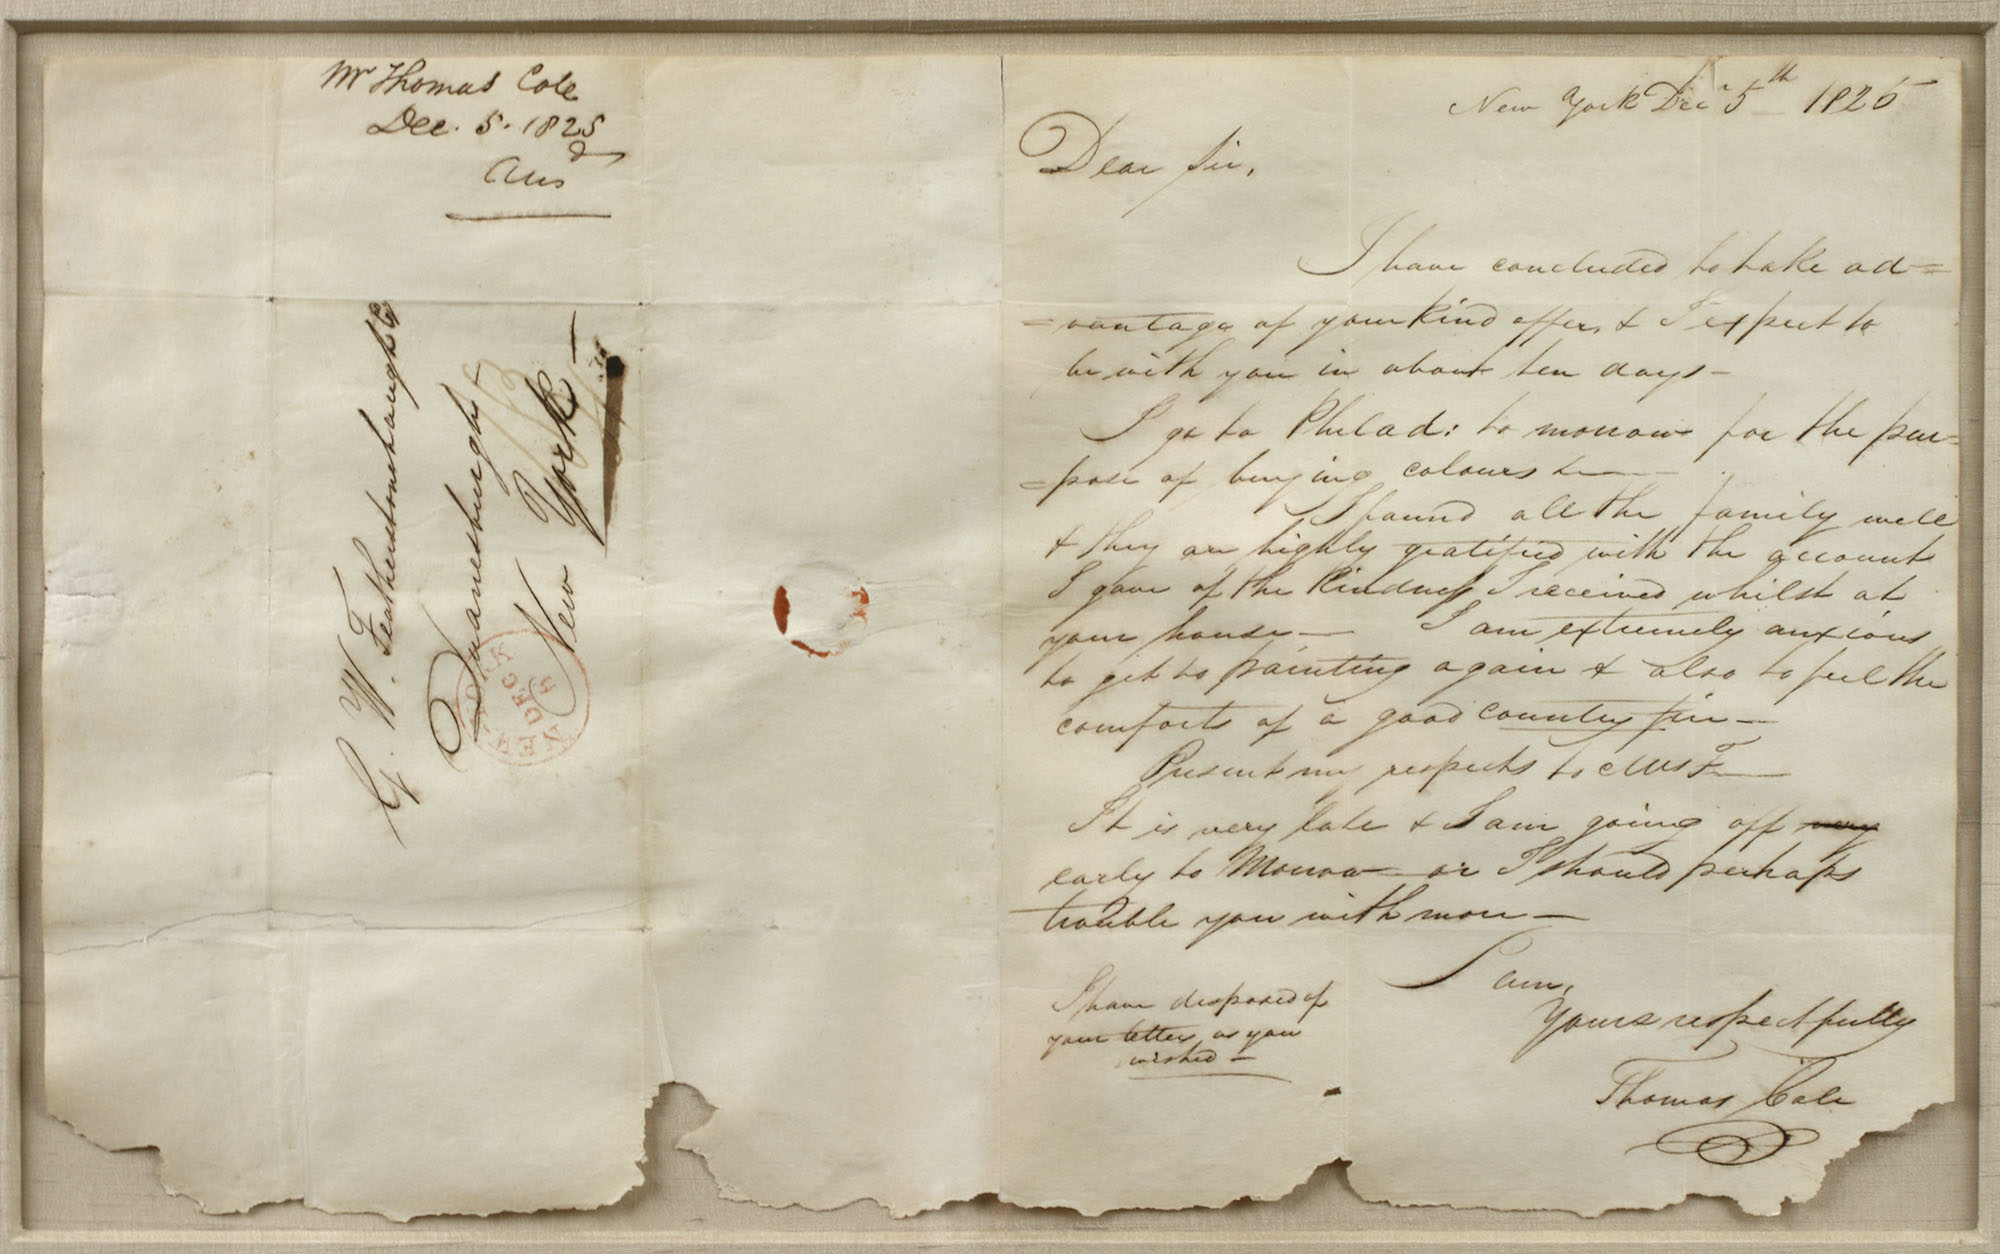 Mr Thomas Cole
Dec. 5. 1825
Ansd
G. W. Featherstonhaugh Esq
Duanesburgh
New York
NEW YORK
DEC
5
New York Decr 5th 1825
Dear Sir,
I have concluded to take ad=
=vantage of your kind offer, & I expect to
be with you in about ten days –
I go to Philad: to morrow for the pur=
=pose of buying colours &
I found all the family well
& they are highly gratified with the account
I gave of the kindness I received whilst at
your house – I am extremely anxious
to get to painting again & also to feel the
comforts of a good country fire –
Present my respects to Mrs F
It is very late & I am going off very
early to Morrow – or I should perhaps
trouble you with more –
I am,
Yours respectfully
Thomas Cole
I have disposed of
your letter, as you
wished –